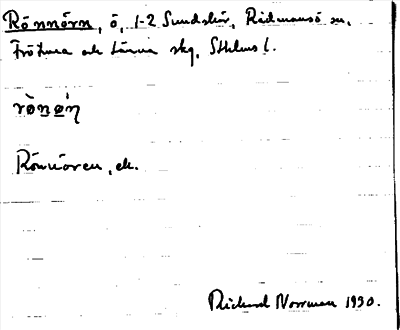 Rönnörn, ö, 1-2 Sundskär, Rädmansö sn,
Frötuna och Länna skg, Sthlms l.
rö̀nǿn
Rönnören, ek.
Rickard Norrman 1930.